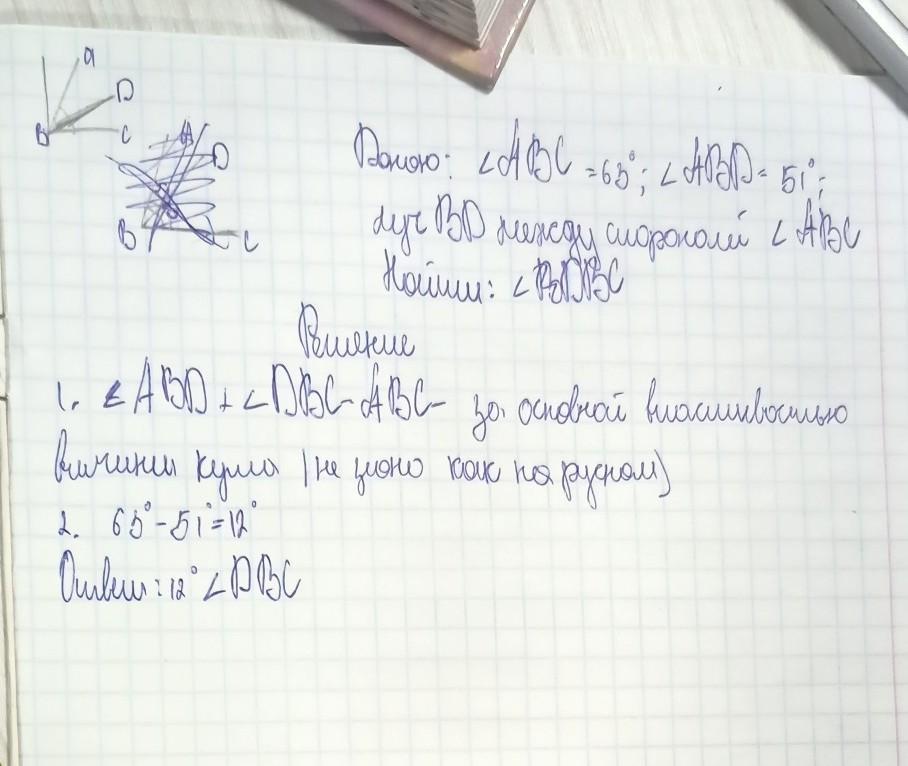 a
D
B
C
A
D
B
C
Дано: ∠ABC = 63°; ∠ABD = 51°;
луч BD между стороной ∠ABC
Найти: ∠DBC
Решение
1. ∠ABD + ∠DBC - ABC - за основной властивостью
величини кута (не знаю как на руском)
2. 63° - 51° = 12°
Ответ: 12° ∠DBC